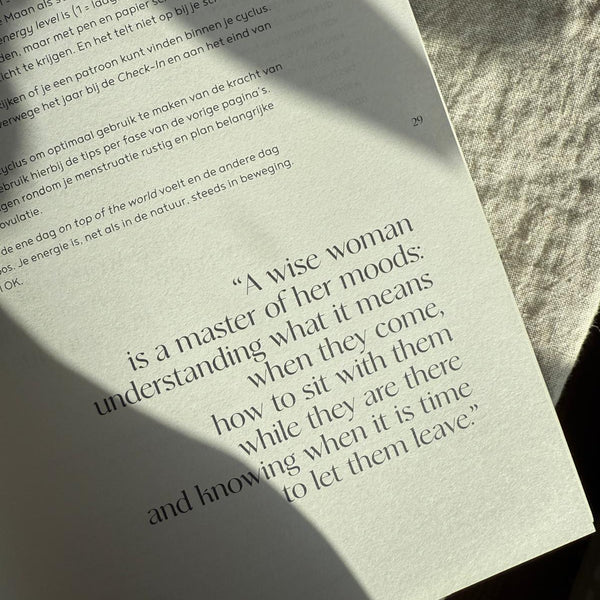 Maan als
energy level is (1 = laag
den, maar met pen en papier
icht te krijgen. En het telt niet op bij je
ijken of je een patroon kunt vinden binnen je cyclus.
verwege het jaar bij de Check-In en aan het eind van
cyclus om optimaal gebruik te maken van de kracht van
ebruik hierbij de tips per fase van de vorige pagina's.
gen rondom je menstruatie rustig en plan belangrijke
ovulatie.
de ene dag on top of the world voelt en de andere dag
os. Je energie is, net als in de natuur, steeds in beweging.
OK.
29
“A wise woman
is a master of her moods:
understanding what it means
when they come,
how to sit with them
while they are there
and knowing when it is time
to let them leave.”